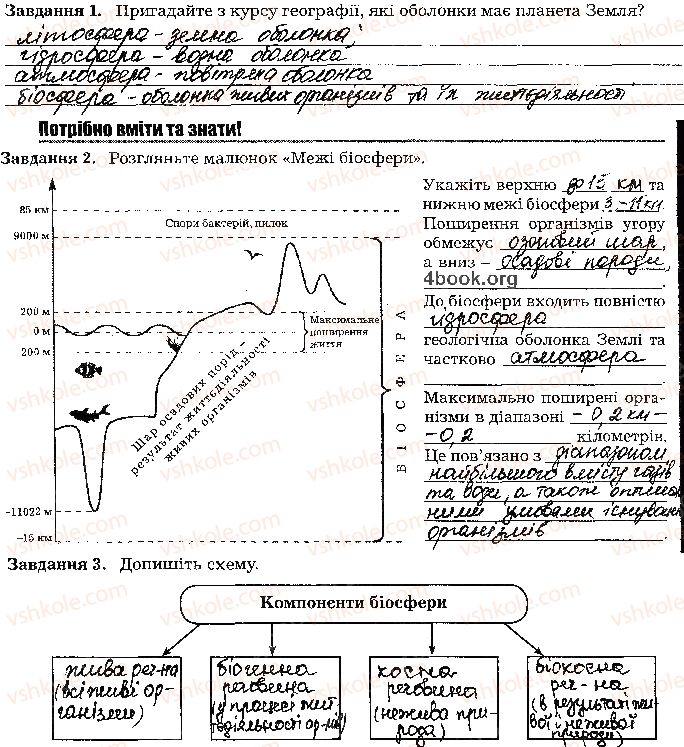 Завдання 1. Пригадайте з курсу географії, які оболонки має планета Земля?
літосфера - земна оболонка,
гідросфера - водна оболонка
атмосфера - повітряна оболонка
біосфера - оболонка живих організмів та їх життєдіяльності.
Потрібно вміти та знати!
Завдання 2. Розгляньте малюнок «Межі біосфери».
85 км
Спори бактерій, пилок
9000 м
200 м
0 м
200 м
Максимальне
поширення
життя
Шар осадових порід –
результат життєдіяльності
живих організмів
-11022 м
-15 км
БІОСФЕРА
Укажіть верхню до 15 км та
нижню межі біосфери 3-11 км.
Поширення організмів угору
обмежує озоновий шар,
а вниз – осадові породи.
4book.org
До біосфери входить повністю
гідросфера
геологічна оболонка Землі та
частково атмосфера
Максимально поширені орга-
нізми в діапазоні - 0,2 км -
- 0,2 кілометрів.
Це пов'язано з діапазоном
найбільшого вмісту газів
та води, а також оптималь
ними умовами існування
організмів
Завдання 3. Допишіть схему.
Компоненти біосфери
жива реч-на
(всі живі ор-
ганізми)
біогенна
речовина
(у процесі жит
тєдіяльності ор-нів)
косна
речовина
(нежива при-
рода)
біокосна
реч-на
(в результаті жи
вої і неживої
природи)
vshkole.com